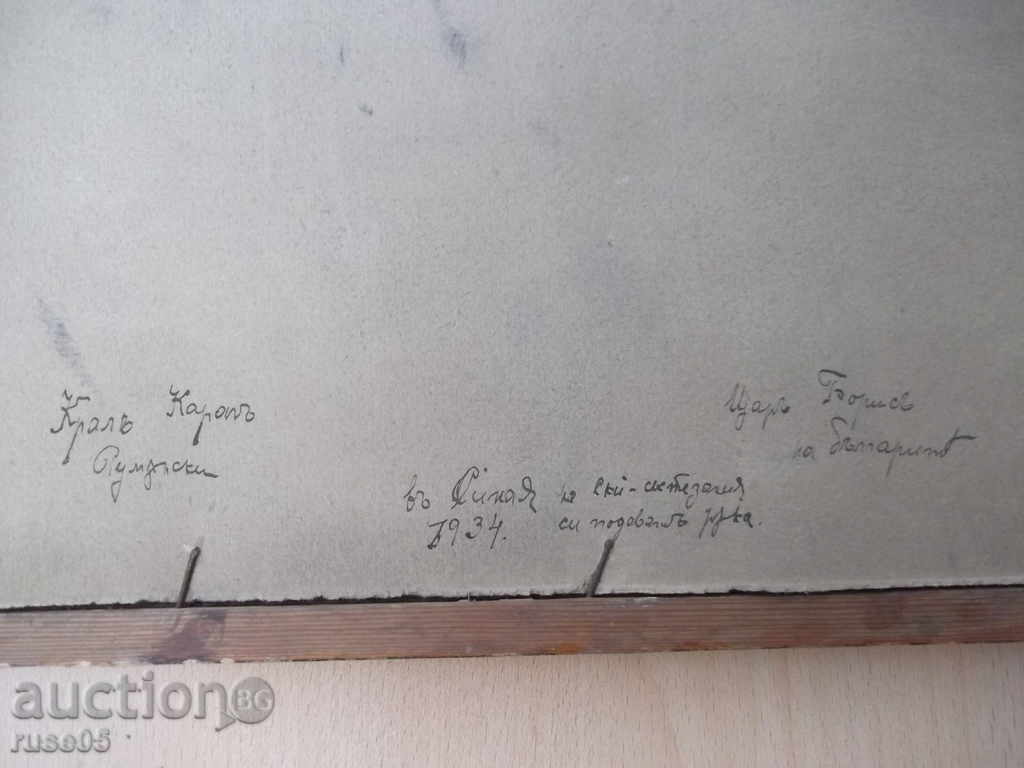 Кралъ Каролъ
Румънски
Царъ Борисъ
на българитѣ
въ Синая на ски-състезания
1934. си подаватъ ръка.
auctionBG
ruse05